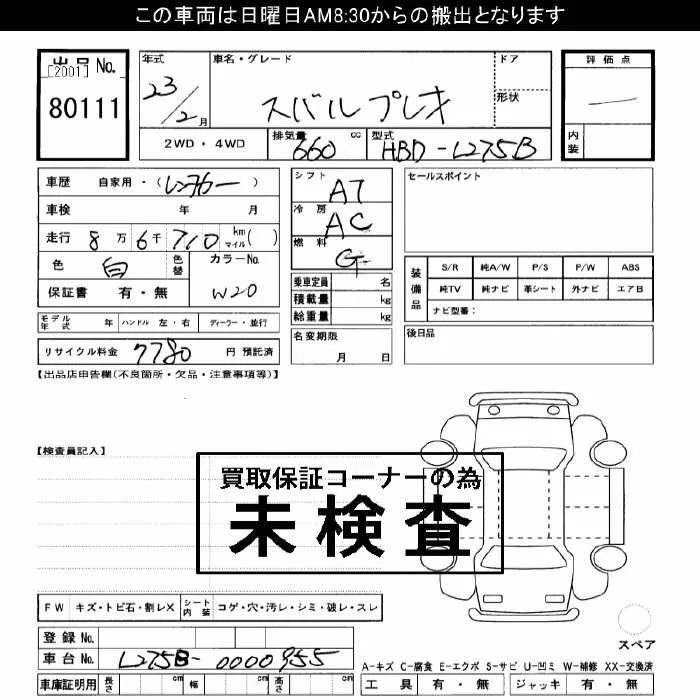 この車両は日曜日AM8:30からの搬出となります
出品 No.
[2001]
80111
年式
23/2月
車名・グレード
スバル プレオ
ドア
形状
評価点
内装
2WD・4WD
排気量 660 cc
型式 HBD-L275B
車歴 自家用・(レンタカー)
車検 年 月
走行 8万6千710 km マイル( )
色 白
色替
カラーNo.
W20
保証書 有・無
シフト AT
冷房 AC
燃料 G
乗車定員 名
積載量 kg
総重量 kg
名変期限
月 日
セールスポイント
装備品
S/R 純A/W P/S P/W ABS
純TV 純ナビ 革シート 外ナビ エアB
ナビ型番:
後日品
モデル年式 年 ハンドル 左・右 ディーラー・並行
リサイクル料金 7780 円 預託済
【出品店申告欄(不良箇所・欠品・注意事項等)】
【検査員記入】
買取保証コーナーの為
未検査
FW キズ・トビ石・割レX シート内装 コゲ・穴・汚レ・シミ・破レ・スレ
登録 No.
車台 No. L275B-0000955
車庫証明用 長さ cm 幅 cm 高さ cm
スペア
A-キズ C-腐食 E-エクボ S-サビ U-凹ミ W-補修 XX-交換済
工具 有・無 ジャッキ 有・無